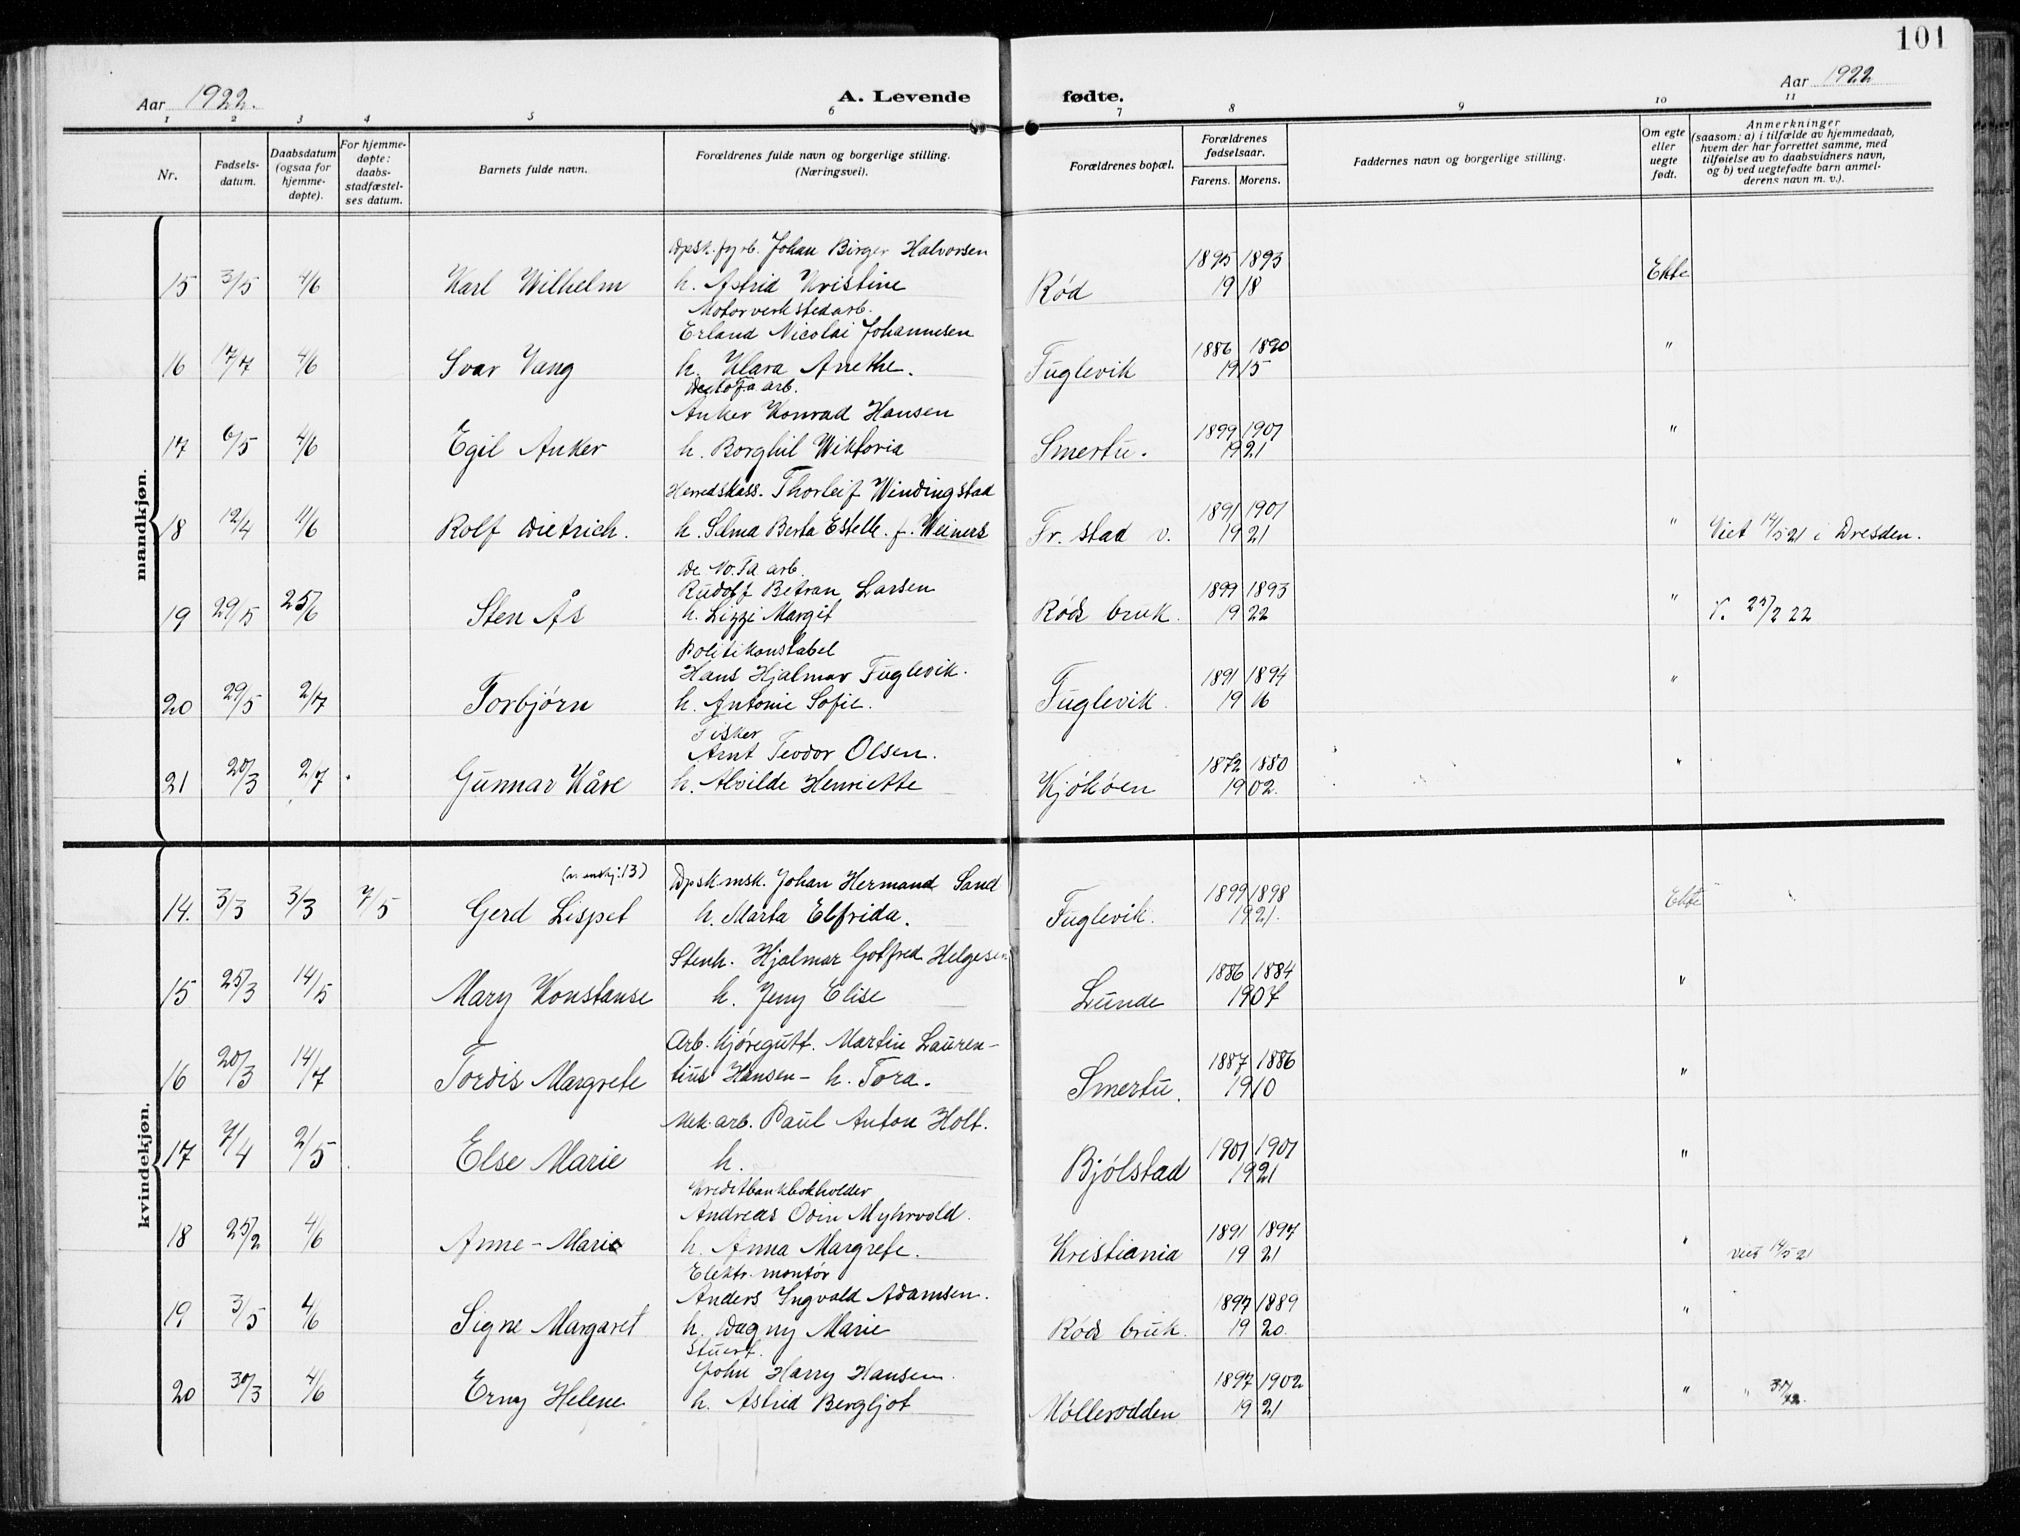 101
Aar 1922.
A. Levende fødte.
Aar 1922
1 2 3 4 5 6 7 8 9 10 11
Nr.
Fødsels-
datum.
Daabsdatum
(ogsaa for
hjemme-
døpte).
For hjemme-
døpte:
daabs-
stadfæstel-
ses datum.
Barnets fulde navn.
Forældrenes fulde navn og borgerlige stilling.
(Næringsvei).
Forældrenes bopæl.
Forældrenes
fødselsaar.
Farens. Morens.
Faddernes navn og borgerlige stilling.
Om egte
eller
uegte
født.
Anmerkninger
(saasom: a) i tilfælde av hjemmedaab,
hvem der har forrettet samme, med
tilføielse av to daabsvidners navn,
og b) ved uegtefødte barn anmel-
derens navn m. v.).
mandkjøn.
Dpsk.fyrb. Johan Birger Halvorsen 1895 1893
15 3/5 4/6 Karl Wilhelm h. Astrid Kristine Rød 1918 Ekte
Motorverkstedarb.
Erland Nicolai Johannesen 1886 1890
16 17/7 4/6 Ivar Vang h. Klara Anethe. Fuglevik 1915 "
Denofa arb.
Anker Konrad Hansen 1899 1901
17 6/5 4/6 Egil Anker h. Borghil Wiktoria Smertu. 1921 "
Herredskass. Thorleif Windingstad 1891 1901
18 12/4 11/6 Rolf Dietrich. h. Selma Berta Estelle. f. Weiners Fr. stad v. 1921 " Viet 14/5 21 i Dresden.
De. No. Fa arb.
Rudolf Betran Larsen 1899 1893
19 29/5 25/6 Sten Ås h. Lizzi Margit Røds bruk. 1922 " V. 25/2 22
Politikonstabel
Hans Hjalmar Fuglevik. 1891 1894
20 29/5 2/7 Torbjørn h. Antonie Sofie. Fuglevik. 1916 "
Fisker
Arnt Teodor Olsen. 1872 1880
21 20/3 2/7 Gunnar Kåre h. Alvilde Henriette Kjøkøen 1902. "
kvindekjøn.
Dpskmsk. Johan Hermand Sand 1899 1898
14. 3/3 3/3 7/5 Gerd Lispet h. Marta Elfrida. Fuglevik. 1921. Ekte
Stenh. Hjalmar Gotfred Helgesen 1886 1884
15 25/3 14/5 Mary Konstanse h. Jeny Elise Lunde 1907 "
Arb. kjøregutt. Martin Lauren- 1887 1886
16 20/3 14/7 Tordis Margrete tius Hansen - h. Tora. Smertu. 1910 "
Mek. arb. Paul Anton Holt. 1901 1901
17 7/4 2/5 Else Marie h. Bjølstad 1921 "
Kreditbankbokholder
Andreas Odin Myhrvold. 1891 1897
18 25/2 4/6 Anne-Marie h. Anna Margrete. Kristiania 1921 " viet 14/5 21
Elektr. montør
Anders Ingvald Adamsen. 1897 1889
19 3/5 4/6 Signe Margaret h. Dagny Marie Røds bruk. 1920. "
Stuert.
John Harry Hansen. 1897 1902
20 30/3 4/6 Erny Helene h. Astrid Bergljot Møllerodden 1921 " "